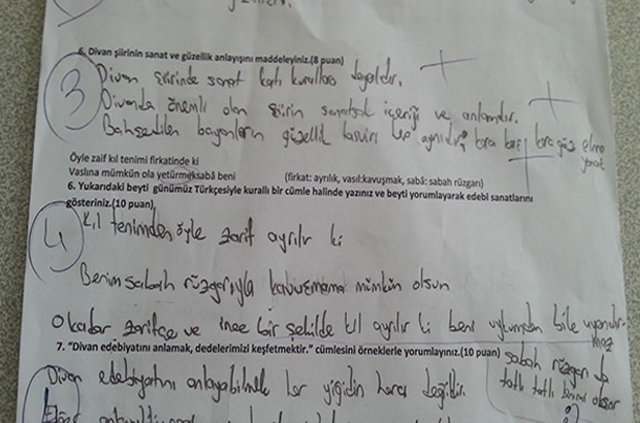 6. Divan şiirinin sanat ve güzellik anlayışını maddeleyiniz.(8 puan)
3
Divan şiirinde sanat katı kurallara dayalıdır.
Divanda önemli olan şiirin sanatsal içeriği ve anlamdır.
Bahsedilen bayanların güzellik tasviri hep aynıdır; kara kaş, kara göz, elma yanak
Öyle zaif kıl tenimi firkatinde ki
Vaslına mümkün ola yetürmeksabâ beni (firkat: ayrılık, vasıl:kavuşmak, sabâ: sabah rüzgarı)
6. Yukarıdaki beyti günümüz Türkçesiyle kurallı bir cümle halinde yazınız ve beyti yorumlayarak edebi sanatlarını
gösteriniz.(10 puan)
4
Kıl tenimden öyle zarif ayrılır ki
Benim sabah rüzgarıyla kavuşmama mümkün olsun
O kadar zarifçe ve ince bir şekilde kıl ayrılır ki beni uykumdan bile uyandırmaz
7. "Divan edebiyatını anlamak, dedelerimizi keşfetmektir." cümlesini örneklerle yorumlayınız.(10 puan)
sabah rüzgarı da
tatlı tatlı
Divan edebiyatını anlayabilmek her yiğidin harcı değildir.